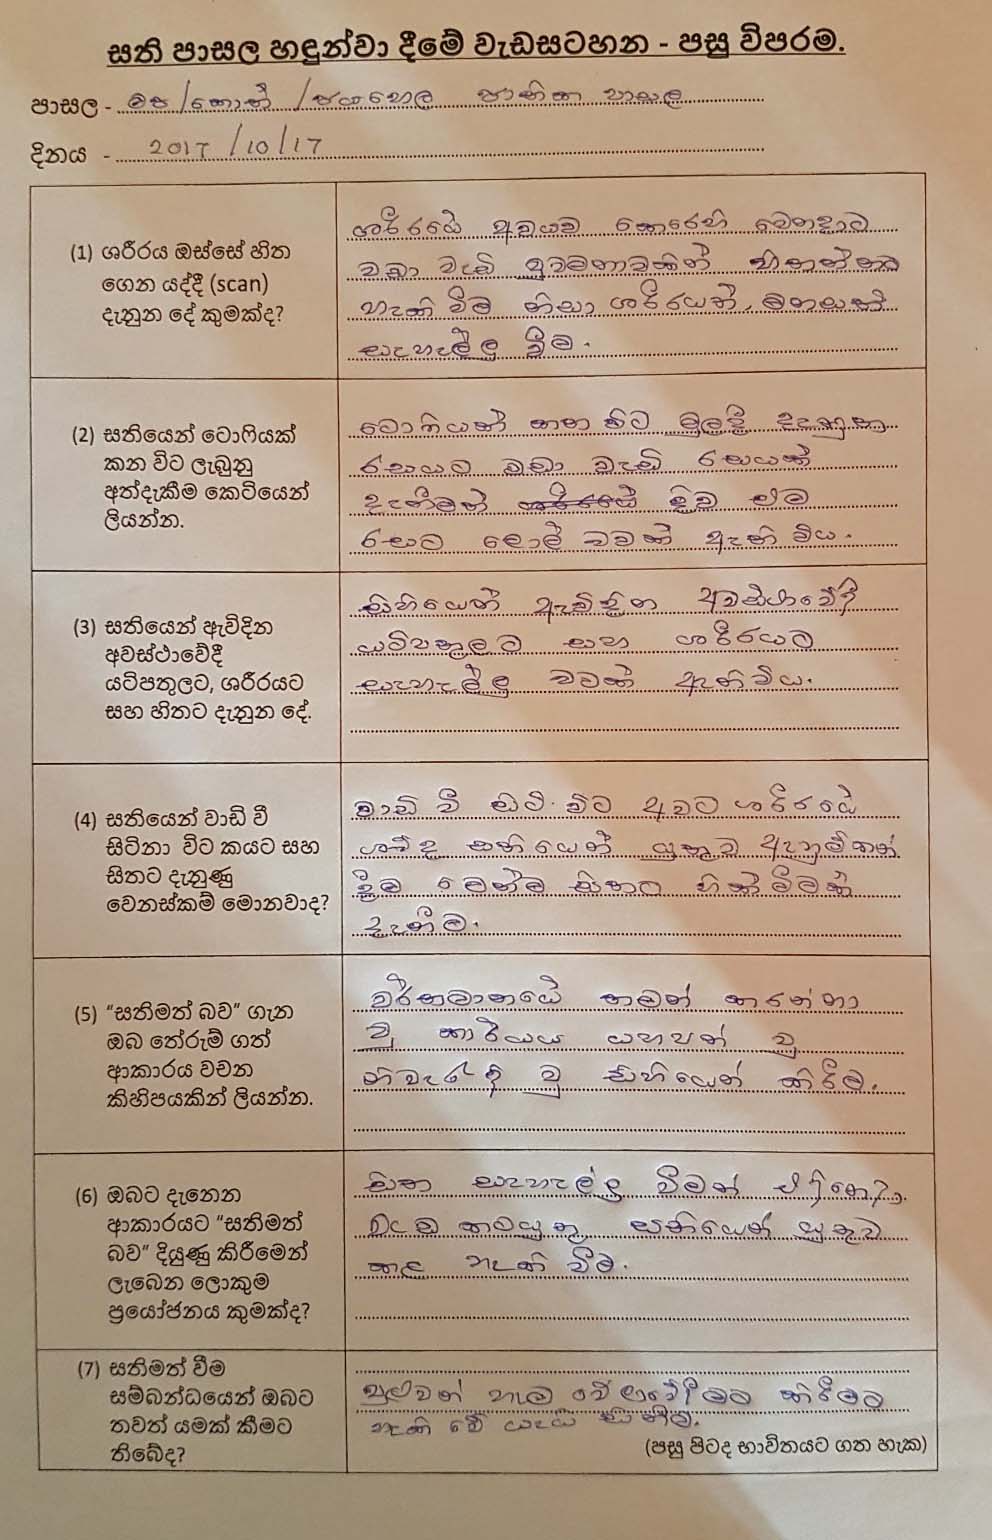 සති පාසල හඳුන්වා දීමේ වැඩසටහන - පසු විපරම.
පාසල - බප/හොර/ජයාලෙල ජාතික පාසල
දිනය - 2017/10/17
(1) ශරීරය ඔස්සේ හිත
ගෙන යද්දී (scan)
දැනුන දේ කුමක්ද?
ශරීරයේ අවයව කෙරෙහි වෙනදාට
වඩා වැඩි අවධානයකින් හිතන්නට
හැකි වීම නිසා ශරීරයත්, මනසත්
සැහැල්ලු වීම.
(2) සතියෙන් ටොෆියක්
කන විට ලැබුනු
අත්දැකීම කෙටියෙන්
ලියන්න.
ටොෆියක් කන විට මුලදී දැනුනු
රසයට වඩා වැඩි රසයක්
දැනීමක් ශරීරයේ දිව එම
රසට ලොල් වවක් ඇති විය.
(3) සතියෙන් ඇවිදින
අවස්ථාවේදී
යටිපතුලට, ශරීරයට
සහ හිතට දැනුන දේ.
සිහියෙන් ඇවිදින අවස්ථාවේදී
යටිපතුලට සහ ශරීරයට
සැහැල්ලු වවක් ඇතිවිය.
(4) සතියෙන් වාඩි වී
සිටිනා විට කයට සහ
සිතට දැනුණු
වෙනස්කම් මොනවාද?
වාඩි වී සිටි විට අවට ශරීරයේ
ශබ්ද සතියෙන් යුතුව ඇහුම්කන්
දීම මෙන්ම සිතට හිත් වීමක්
දැනීම.
(5) “සතිමත් බව” ගැන
ඔබ තේරුම් ගත්
ආකාරය වචන
කිහිපයකින් ලියන්න.
වර්තමානයේ තමන් කරන්නා
වූ කාර්යය යහපත් වූ
නිවැරදි වූ සිහියෙන් කිරීම.
(6) ඔබට දැනෙන
ආකාරයට “සතිමත්
බව” දියුණු කිරීමෙන්
ලැබෙන ලොකුම
ප්‍රයෝජනය කුමක්ද?
සිත සැහැල්ලු වීමත් එදිනෙදා
වැඩ කටයුතු සතියෙන් යුතුව
කළ හැකි වීම.
(7) සතිමත් වීම
සම්බන්ධයෙන් ඔබට
තවත් යමක් කීමට
තිබේද?
පුළුවන් හැම වේලාවේම කිරීමට
හැකි වේ යැයි සිතීම.
(පසු පිටද භාවිතයට ගත හැක)